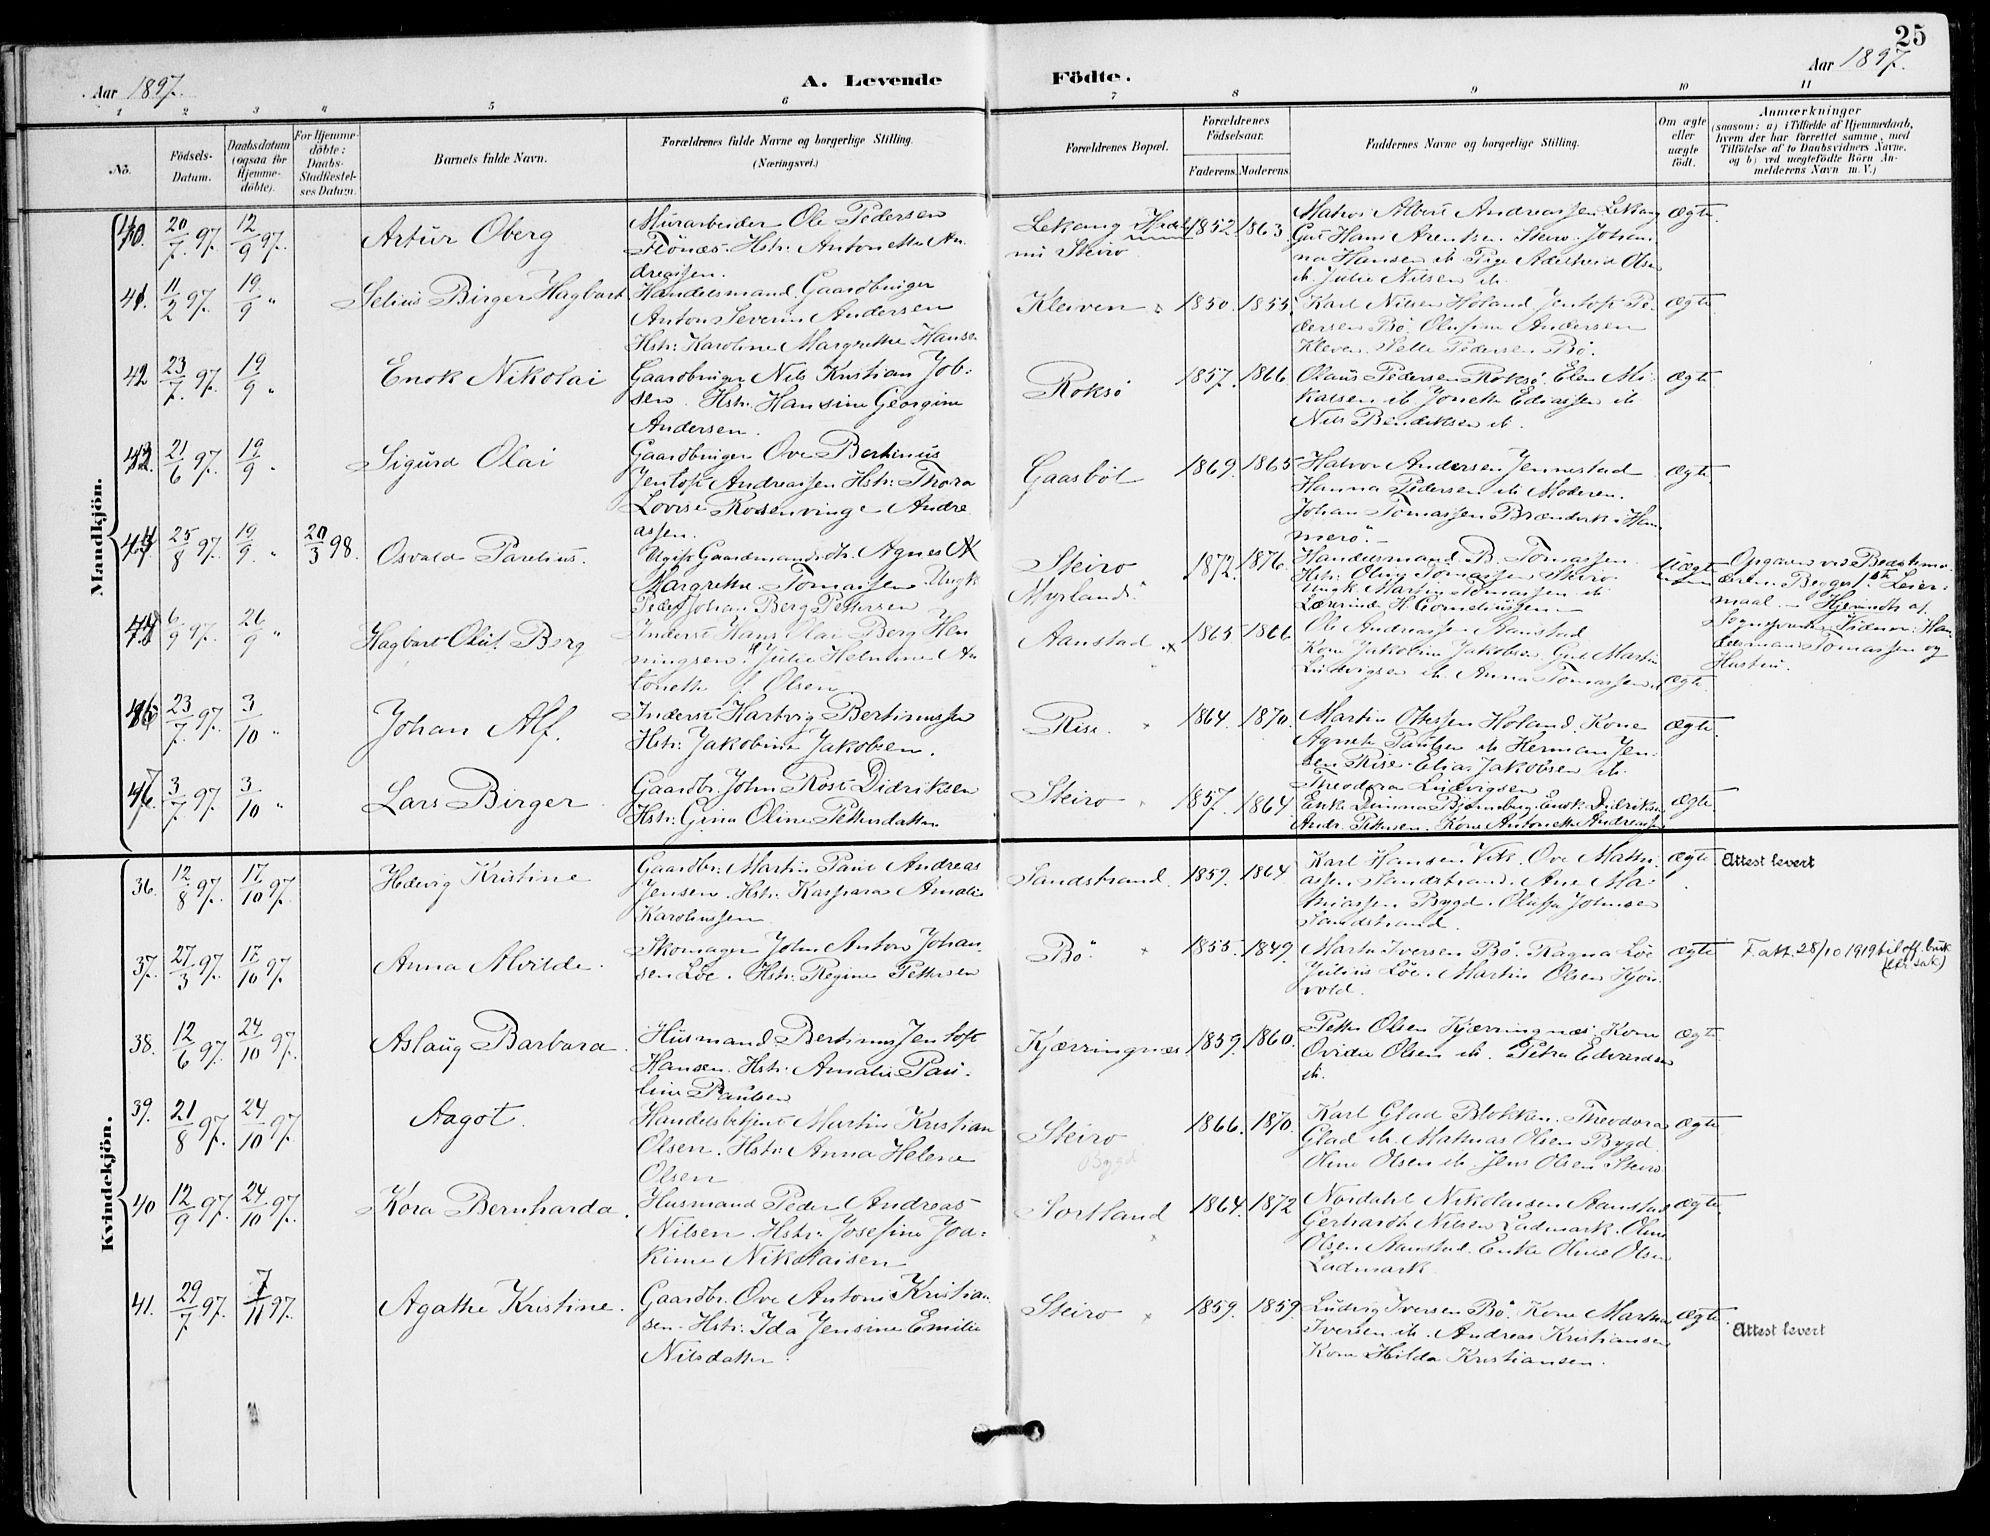 25
Aar 1897.
A. Levende Födte.
Aar 1897.
1 2 3 4 5 6 7 8 9 10 11
No.
Födsels-Datum.
Daabsdatum (ogsaa for Hjemme-döbte).
For Hjemme-döbte: Daabs-Stadfæstel-ses Datum.
Barnets fulde Navn.
Forældrenes fulde Navne og borgerlige Stilling.
(Næringsvei.)
Forældrenes Bopæl.
Forældrenes Födselsaar.
Faderens. Moderens.
Faddernes Navne og borgerlige Stilling.
Om ægte eller uægte födt.
Anmærkninger
(saasom: a) i Tilfælde af Hjemmedaab, hvem der har forrettet samme, med Tilföielse af to Daabsvidners Navne, og b) ved uægtefödte Börn An-melderens Navn m. V.)
Mandkjön.
40. 20/7 97. 12/9 97. Artur Oberg
Murarbeider Ole Pedersen
Hstr. Antonette An-
dreassen.
Lekang
Steiro
1852 1863.
Matros Albert Andreassen Lekang
Gut Hans Arentsen Steiro. Johan-
na Hansen ib. Pige Adelheid Olsen
ib. Julie Nilsen ib.
Ægte
41. 11/2 97. 19/9 " Selius Birger Hagbart
Handelsmand Gaardbruger
Anton Severin Andersen
Hstr. Karoline Margrethe Hansen
Kleiven
1850. 1855.
Karl Nilsen Holand Jentoft Pe-
dersen Bö. Andersen
Kleven. Pedersen Bö.
ægte
42 23/7 97. 19/9 " Enok Nikolai
Gaardbruger Nils Kristian Job-
sen. Hstr. Hansine Georgine
Andersen.
Roksö
1857. 1866
Olaus Pedersen Roksö. Elen Mi-
kalsen ib Jonette Ediassen ib
Nils Bendiksen ib.
Ægte
43. 21/6 97. 19/9 " Sigurd Olai
Gaardbruger Ove Bertinus
Jentoft Andreassen Hstr. Thora
Lovise Rosenvinge Andre
assen.
Gaasböl
1869. 1865
Halvor Andersen Jennestad
Hanna Pedersen ib Moderen.
Johan Tomassen Ham-
merö.
ægte
44 25/8 97. 19/9 " 20/3 98. Osvald Parelius.
Ugift Gaardmandsdtr. Agnes
Margrethe Tomassen. Ungk.
Peder Johan Berg Pettersen
Steiro
Myrland.
1872. 1876.
Handelsmand B. Tomassen
Hstr. Oline Tomassen Steiro
Ungk. Martin Tomassen ib
Lærerinde H. Corneliussen
Uægte
Opgaven ved Bedstemo-
deren. Begges 1ste Leier-
maal. - Hjemdbt. af
Sognepræsten Vidner: Han-
delsmand Tomassen og
Hustru.
45 6/9 97. 26/9 " Hagbart Olut Berg
Inderst Hans Olai Berg Hen
ningsen. Julie Helmine An
tonette Olsen
Aanstad
1865 1866
Ole Andreassen Aanstad
Kone Jakobine Jakobsen. Gut Martin
Ludvigsen ib. Anna Tomassen ib
ægte.
46 23/7 97. 3/10 " Johan Alf.
Inderst Hartvig Bertinussen
Hstr. Jakobine Jakobsen.
Rise.
1864. 1870.
Martin Ottesen Holand. Kone
Agnete Paulsen ib Herman Jen-
sen Rise. Elias Jakobsen ib.
Theodora Ludvigsen
ægte.
47. 3/7 97. 3/10 " Lars Birger
Gaardbr. John Röst Didriksen
Hstr. Gina Oline Pettersdatter
Steiro
1857. 1864
Enke Björnsborg. Enok Didriksen
Andr. Pettersen. Kone Antonette Andreassen
ægte
Kvindekjön.
36. 12/8 97. 17/10 97. Hedvig Kristine
Gaardbr. Martin Paul Andreas
Jensen. Hstr. Kaspara Amalie
Karoliussen
Sandstrand.
1859. 1864
Karl Hansen Vik. Ove Mathi-
assen Sandstrand. Ane Ma-
thiassen Bygd. Johnsen
Sandstrand.
ægte.
Attest levert
37. 27/3 97. 17/10 97 Anna Alvilde.
Skomager John Anton Johan
sen Löe. Hstr. Regine Pettersen
Bö
1855. 1849.
Martin Iversen Bö. Ragna Löe
Julius Löe. Martin Olsen Kjön-
vold.
ægte
F. att. 28/10 1919 til off. bruk
38. 12/6 97. 24/10 97. Aslaug Barbara.
Husmand Bertinus Jentoft
Hansen. Hstr. Amalie Pau-
line Paulsen
Kjærringnes
1859. 1860.
Petter Olsen Kjærringnes. Kone
Ovidie Olsen ib. Petra Edvardsen
ib.
Ægte
39. 21/8 97. 24/10 97. Aagot.
Handelsbetjent Martin Kristian
Olsen. Hstr. Anna Helene
Olsen
Steiro
Bygd
1866. 1870.
Karl Glad Blokken. Theodora
Glad ib. Mathias Olsen Bygd
Oline Olsen ib. Jens Olsen Steiro
ægte
40 12/9 97. 24/10 97. Kora Bernharda.
Husmand Peder Andreas
Nilsen. Hstr. Josefine Joa-
kime Nikolaisen
Sortland
1864. 1872
Nordahl Nikolaisen Aanstad
Gerhardt Nilsen Ladmark. Oline
Olsen Aanstad. Enke Oline Olsen
Ladmark
ægte.
41. 29/7 97. 7/11 97. Agathe Kristine.
Gaardbr. Ove Anton Kristian-
sen. Hstr. Ida Jensine Emilie
Nilsdatter.
Steiro
1859. 1859.
Ludvig Iversen Bö. Kone Martha
Iversen ib. Andreas Kristiansen
Kone Hilda Kristiansen.
ægte.
Attest levert